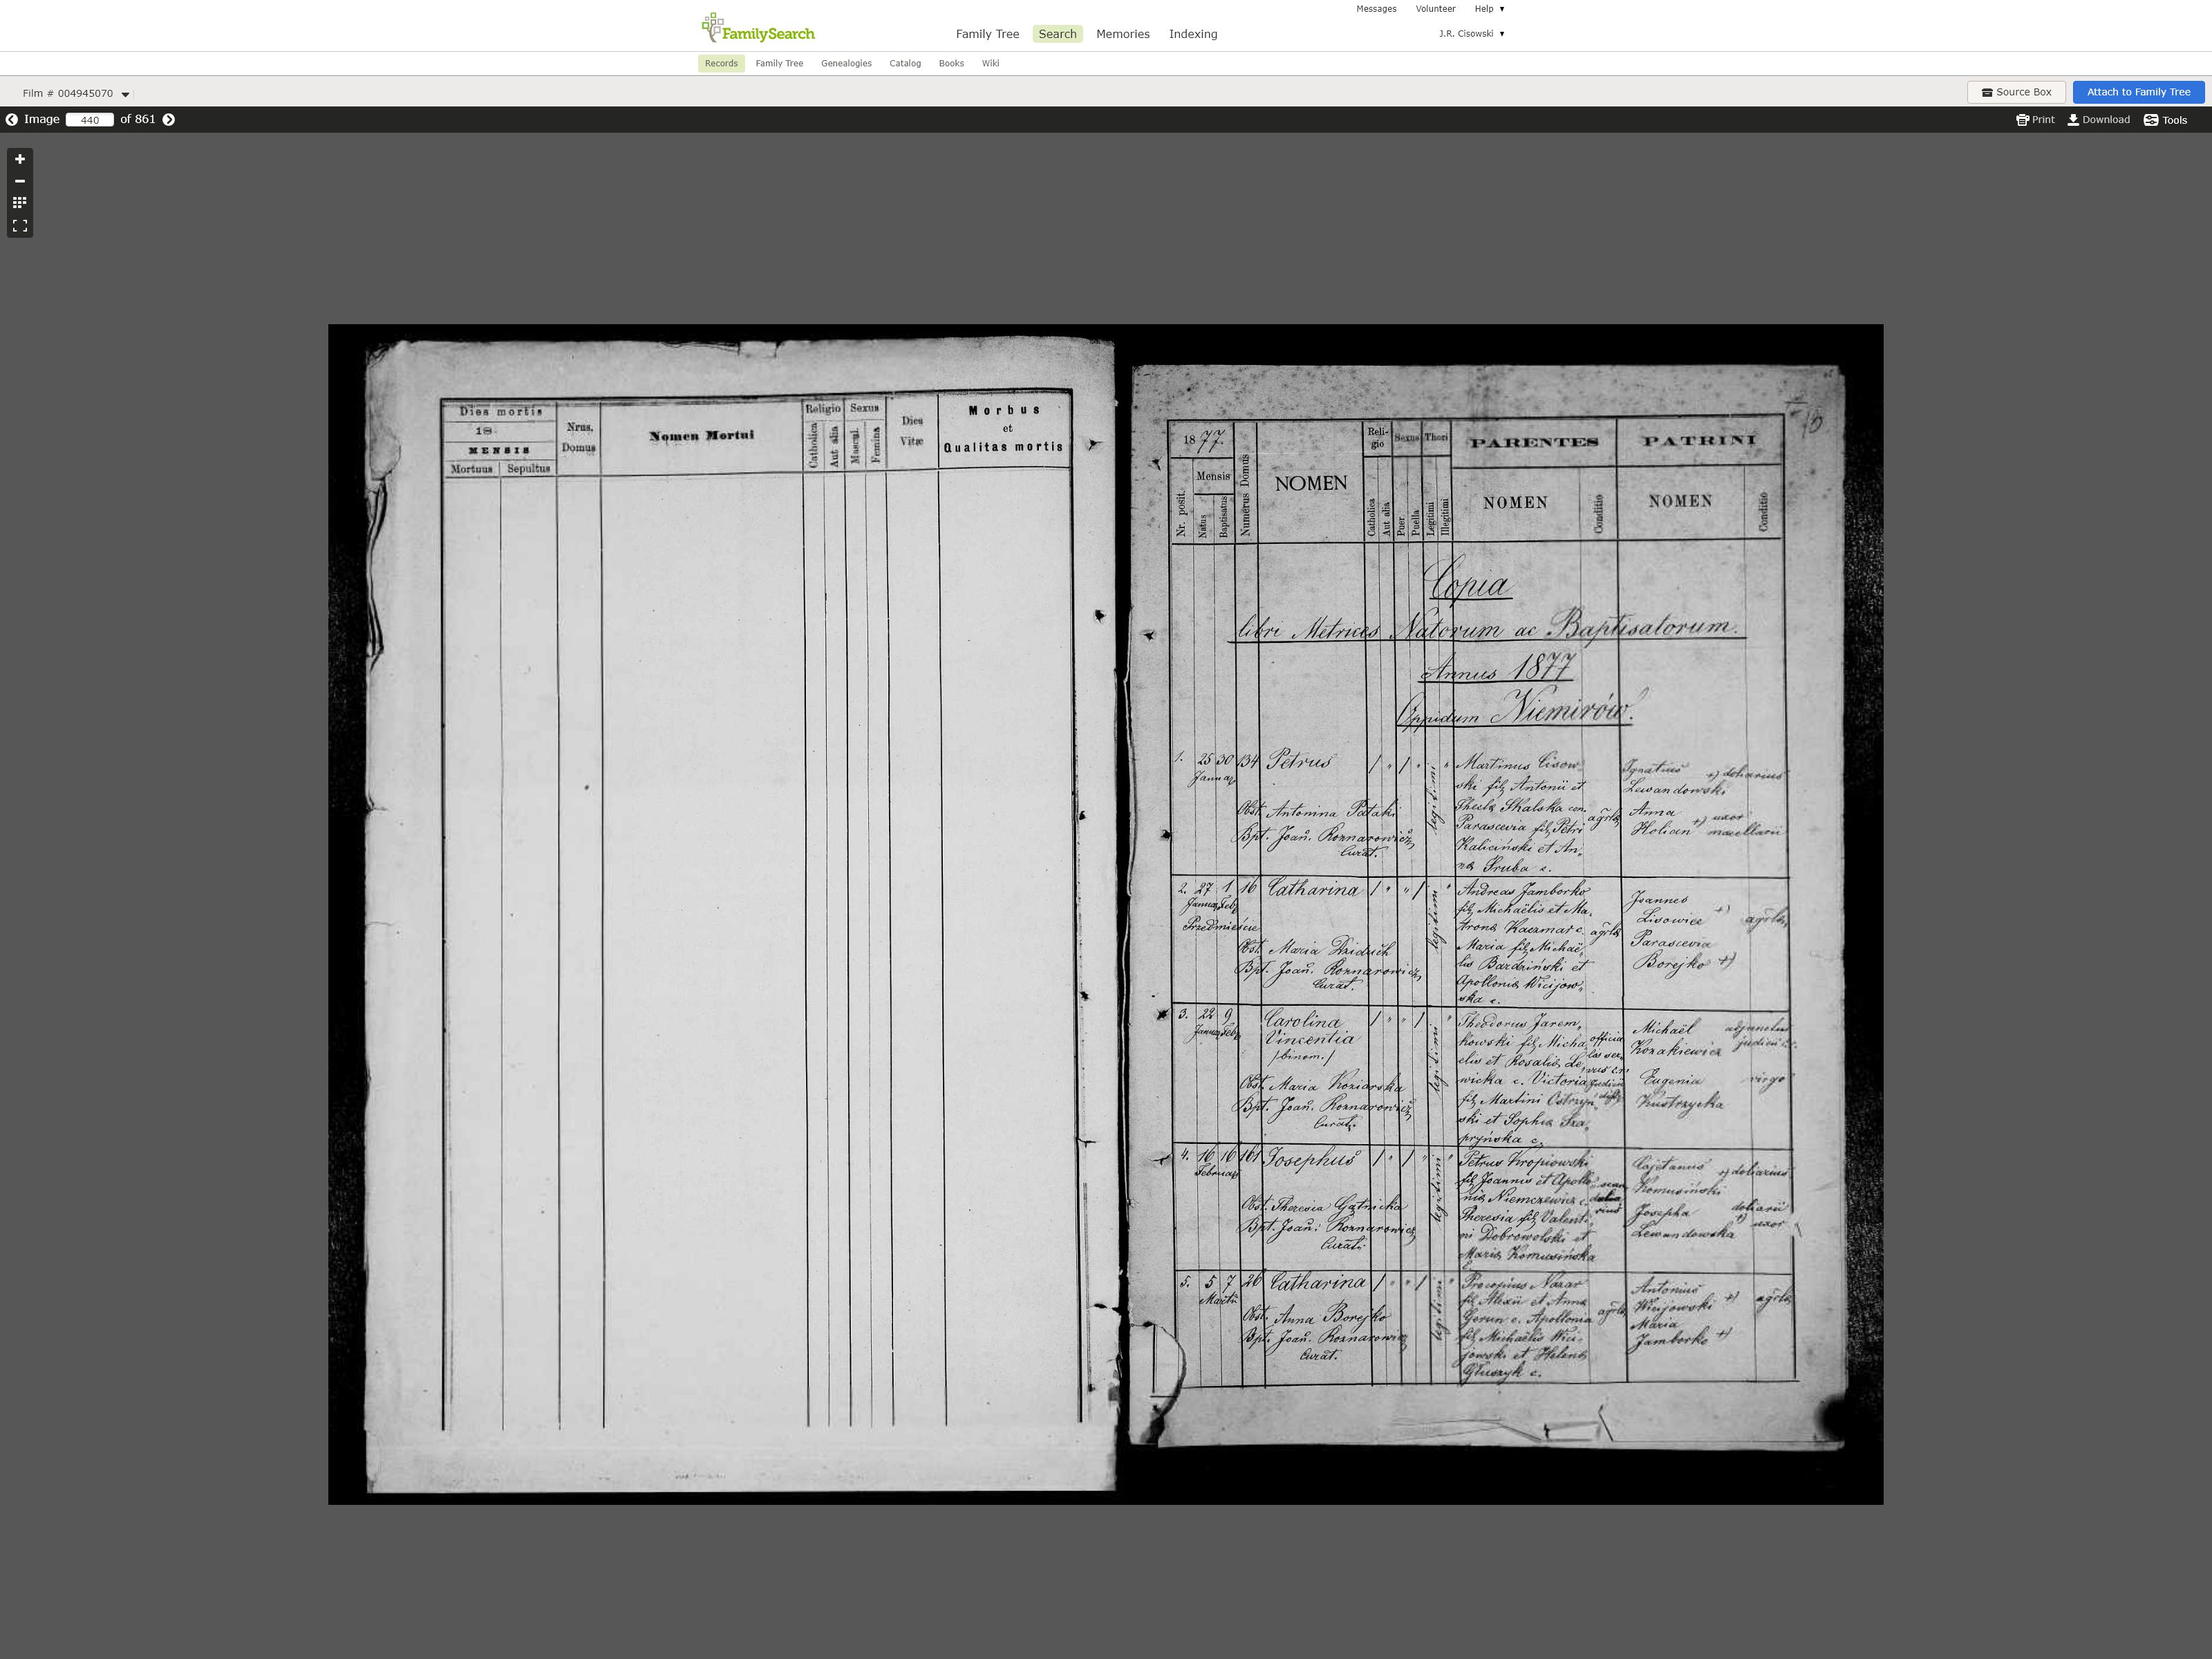 Messages Volunteer Help ▼
FamilySearch
Family Tree Search Memories Indexing
J.R. Cisowski ▼
Records Family Tree Genealogies Catalog Books Wiki
Film # 004945070
Source Box
Attach to Family Tree
Image 440 of 861
Print Download Tools
Dies mortis
18
MENSIS
Mortuus Sepultus
Nrus. Domus
Nomen Mortui
Religio
Catholica
Aut alia
Sexus
Mascul.
Femina
Dies Vitæ
Morbus
et
Qualitas mortis
1877.
Nr. posit.
Mensis
Natus
Baptisatus
Numerus Domus
NOMEN
Reli-
gio
Catholica
Aut alia
Sexus
Puer
Puella
Thori
Legitimi
Illegitimi
PARENTES
NOMEN
Conditio
PATRINI
NOMEN
Conditio
Copia
libri Metrices Natorum ac Baptisatorum.
Annus 1877
Oppidum Niemirów.
1. 25 30 134 Petrus
Obst. Antonina Pataki
Bpt. Joañ. Roznarowicz
Curat.
legitimi
Martinus Cisow
ski fil Antonii et
Thecla Skalska con.
Parascevia fil Petri
Kaliciński et An,
na Sruba c.
Ignatius +) doliarius
Lewandowski
Anna +) uxor
Holicen macellarii
2. 27 1 16 Catharina
Przedmieście
Obst. Maria Dziduch
Bpt. Joañ. Roznarowicz
Curat.
legitimi
Andreas Jamborko
fil Michaëlis et Ma,
trona Kaczmar c.
Maria fil Michaë,
lis Bardziński et
Apollonia Wicijow,
ska c.
Joannes
Lisowiec +)
Parascevia
Borejko +)
3. 22 9 Carolina
Vincentia
/binom./
Obst. Maria Koziarska
Bpt. Joañ. Roznarowicz
Curat.
legitimi
Theodorus Jarem,
kowski fil Micha,
elis et Rosalia Le,
wicka c. Victoria
fil Martini Ostrzyń
ski et Sophia Sza,
pryńska c.
Michaël adjunctus
Kozakiewicz judicii
Eugenia virgo
Kustrzycka
4. 16 16 161 Josephus
Februar
Obst. Theresia Gątnicka
Bpt. Joañ. Roznarowicz
Curat.
legitimi
Petrus Kropiowski
fil Joannis et Apollo
nia Niemczewicz c.
Theresia fil Valenti,
ni Dobrowolski et
Maria Komusińska
c.
Cajetanus +) doliarius
Komusiński
Josepha doliarii
Lewandowska +) uxor
5. 5 7 26 Catharina
Martii
Obst. Anna Borejko
Bpt. Joañ. Roznarowicz
Curat.
legitimi
Procopius Nazar
fil Alexii et Anna
Gerun c. Apollonia
fil Michaëlis Wici,
jowski et Helena
Głuszyk c.
Antonius
Wicijowski +)
Maria
Jamborko +)